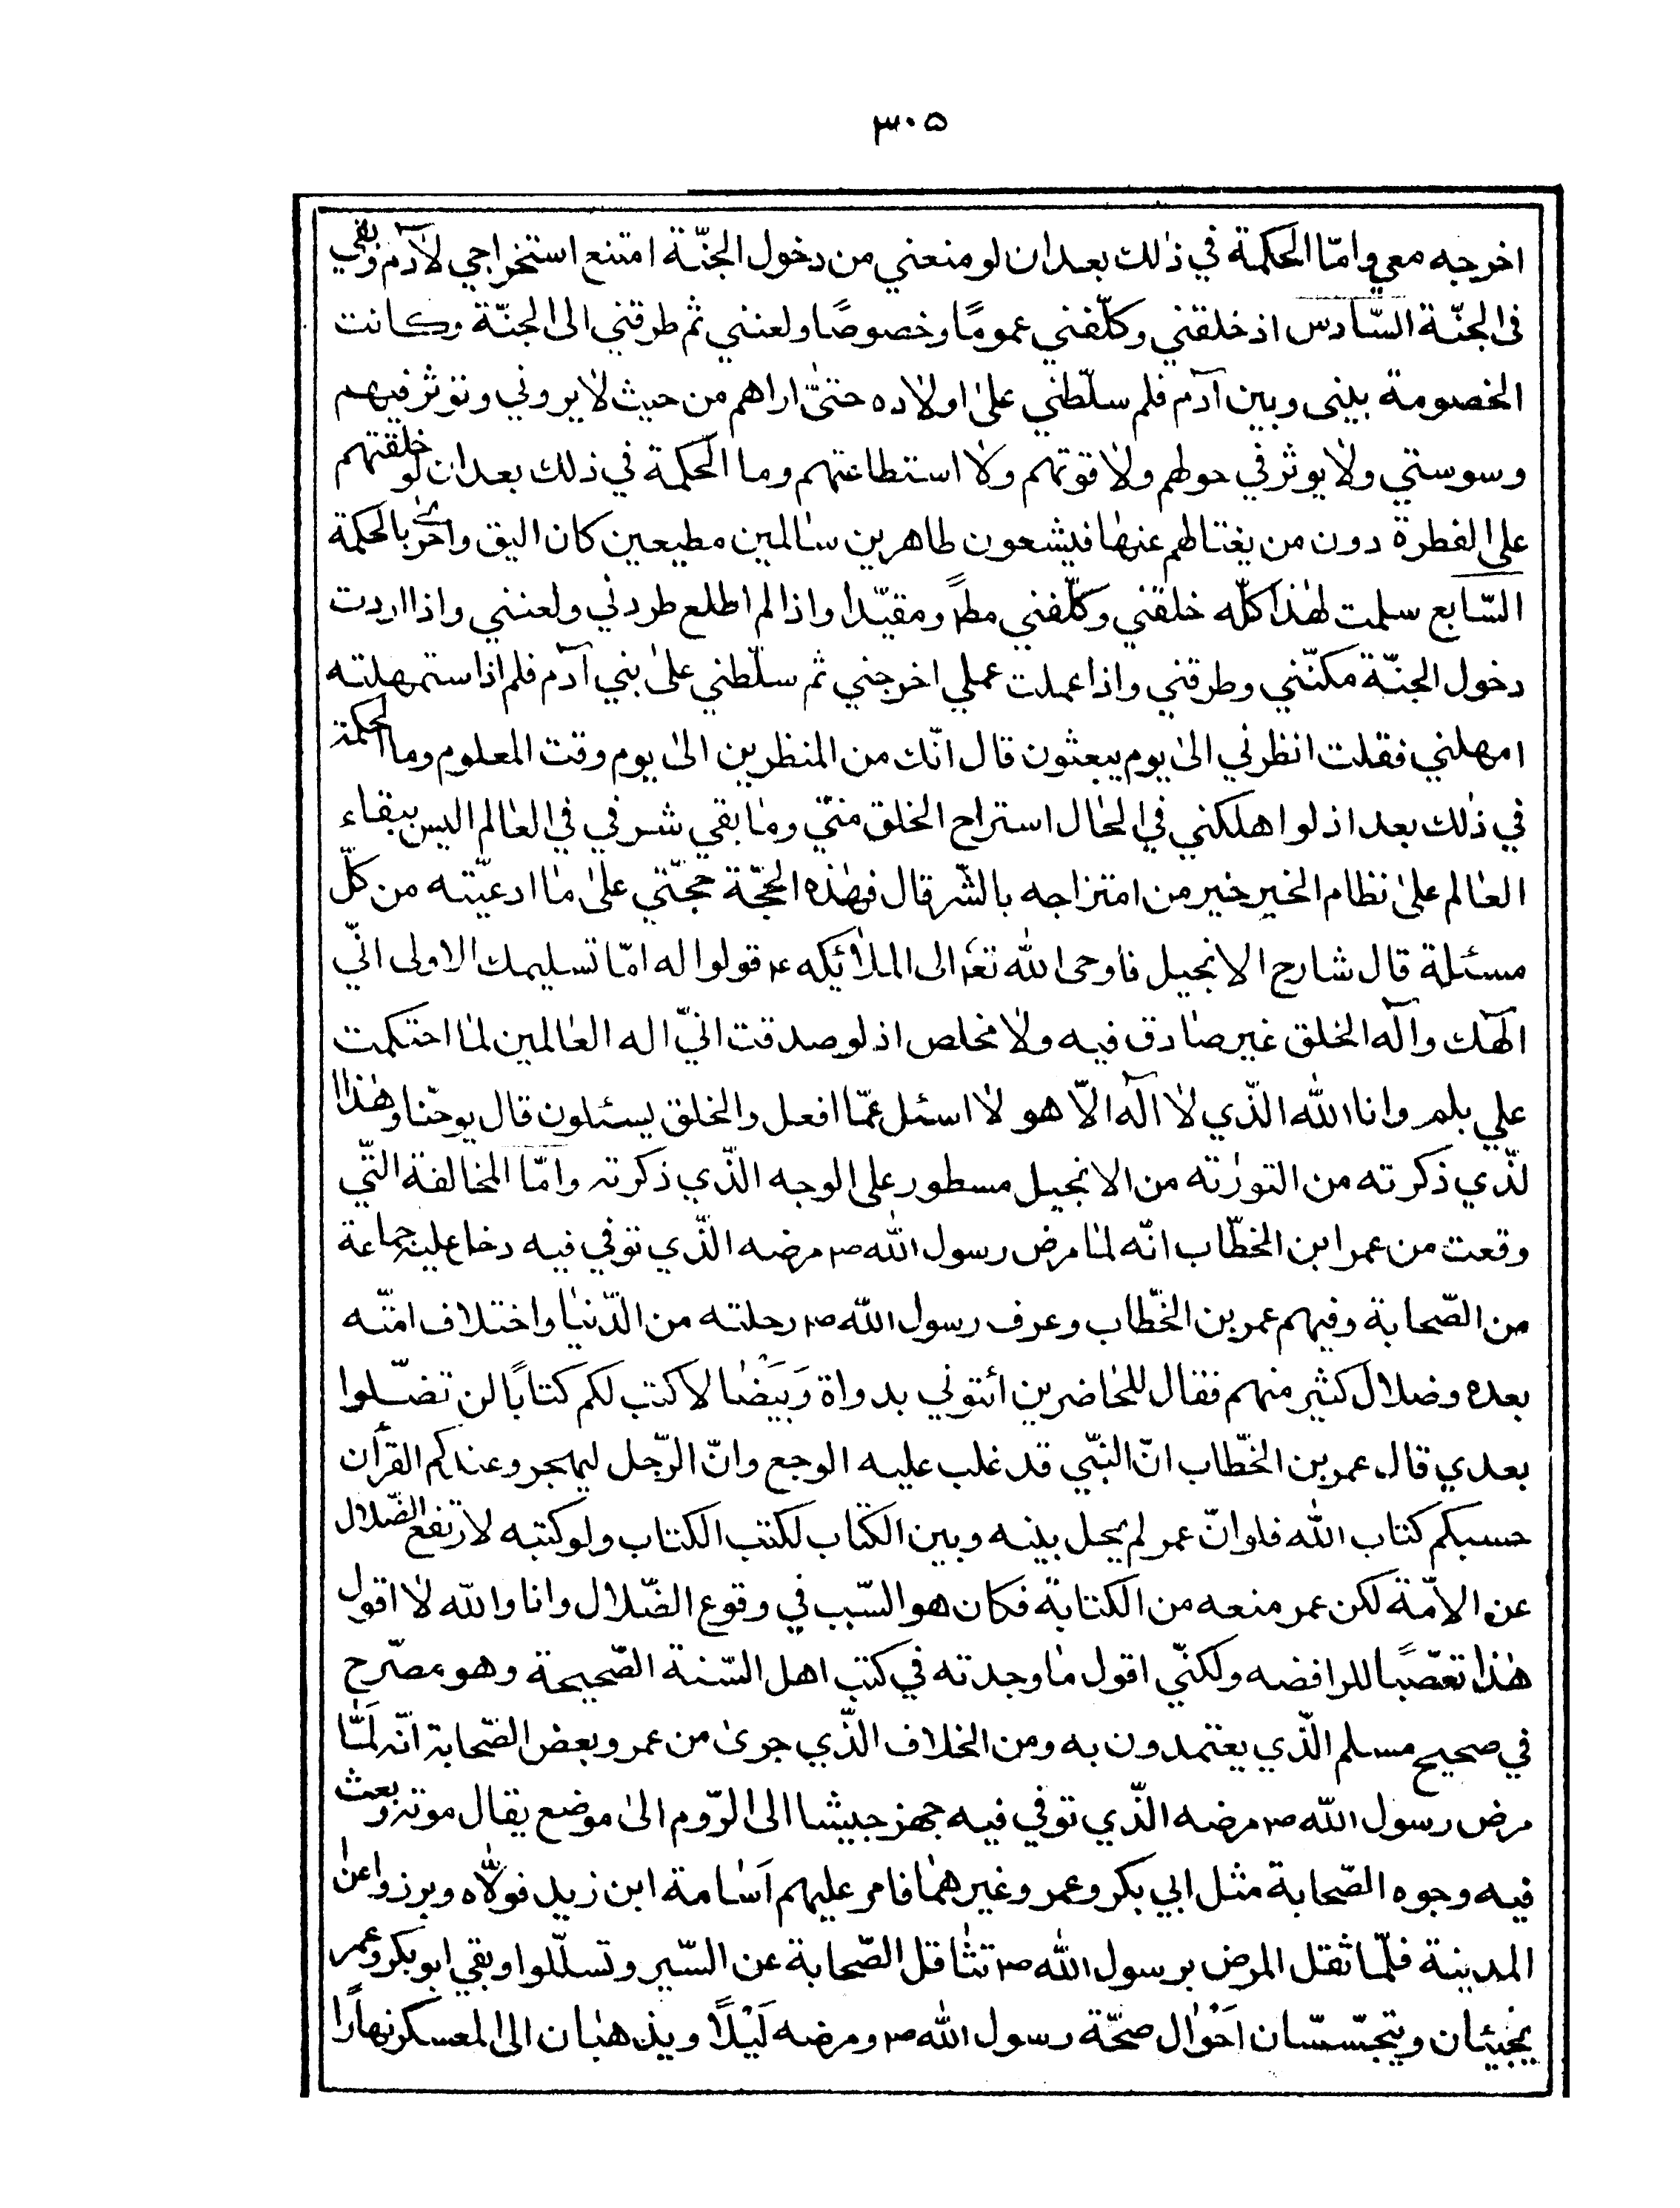 ٣٠٥
اخرجه معي وامّا الحكمة في ذلك بعد ان لو منعني من دخول الجنّة امتنع استخراجي لآدم وبقي
فى الجنّة السّادس اذ خلقني وكلّفني عمومًا وخصوصًا ولعنني ثم طرقني الى الجنّة وكانت
الخصومة بيني وبين آدم فلم سلّطني على اولاده حتىّ اراهم من حيث لا يروني وتوثر فيهم
وسوستي ولا يوثر في حولهم ولا قوتهم ولا استطاعتهم وما الحكمة في ذلك بعد ان لو خلقتهم
على الفطرة دون من يغتالهم عنها فيشعون طاهرين سالمين مطيعين كان اليق واحرى بالحكمة
السّابع سلمت لهذا كلّه خلقني وكلّفني مطً ومقيّدا واذا لم اطلع طردني ولعنني واذا اردت
دخول الجنّة مكنّني وطرقني واذا عملت عملي اخرجني ثم سلّطني على بني آدم فلم اذا ستمهلته
امهلني فقلت انظرني الى يوم يبعثون قال انّك من المنظرين الى يوم وقت المعلوم وما الحكمة
في ذلك بعد اذ لو اهلكني في الحال استراح الخلق منّي وما بقي شر في في العالم اليس ببقاء
العالم على نظام الخير خير من امتزاجه بالشّر قال فهذه الحجّة حجّتي على ما ادعيّته من كلّ
مسئلة قال شارح الانجيل فاوحى الله تعۤ الى الملائكه عۤ قولوا له امّا تسليمك الاولى انّي
الهك واله الخلق غير صادق فيه ولا مخلص اذ لو صدقت انيّ اله العالمين لما احتكمت
علي بلم وانا الله الذّي لا اله الاّ هو لا اسئل عمّا افعل والخلق يسئلون قال يوحّنا وهذا ا
لذّي ذكرته من التورٰته من الانجيل مسطور على الوجه الذّي ذكرته وامّا المخالفة التّي
وقعت من عمر ابن الخطّاب انّه لما مرض رسول الله ص مرضه الذّي توفي فيه دخل عليه جماعة
من الصّحابة وفيهم عمر بن الخّطاب وعرف رسول الله ص رحلته من الدّنيا واختلاف امّته
بعده وضلال كثير منهم فقال للحاضرين أئتوني بدواة وَبَيْضا لاكتب لكم كتابًا لن تضّلوا
بعدي قال عمر بن الخّطاب انّ النبّي قد غلب عليه الوجع وانّ الرّجل ليهجر وعندكم القرأن
حسبكم كتاب الله فلو انّ عمر لم يحل بينه وبين الكتاب لكتب الكتاب ولو كتبه لارتفع الضّلال
عن الامّة لكن عمر منعه من الكتابة فكان هو السّبب في وقوع الضّلال وانا والله لا اقول
هذا تعصّبًا للرافضه ولكنّي اقول ما وجدته في كتب اهل السّنة الصّحيحة وهو مصّرح
في صحيح مسلم الذّي يعتمدون به ومن الخلاف الذّي جرى من عمر وبعض الصّحابة انّه لَمّا
مرض رسول الله ص مرضه الذّي توفي فيه جهز جيشا الى الرّوم الى موضع يقال موته وبعث
فيه وجوه الصّحابة مثل ابي بكر وعمر وغيرهما فامر عليهم اَسامة ابن زيد فولّاه وبرزوا عن
المدينة فلمّا ثقل المرض برسول الله ص تثاقل الصّحابة عن السّير وتسلّلوا وبقي ابو بكر وعمر
يجيئان ويتجسّسّان اَحْوال صحّة رسول الله ص ومرضه لَيْلًا ويذهبان الى المعسكر نهارًا